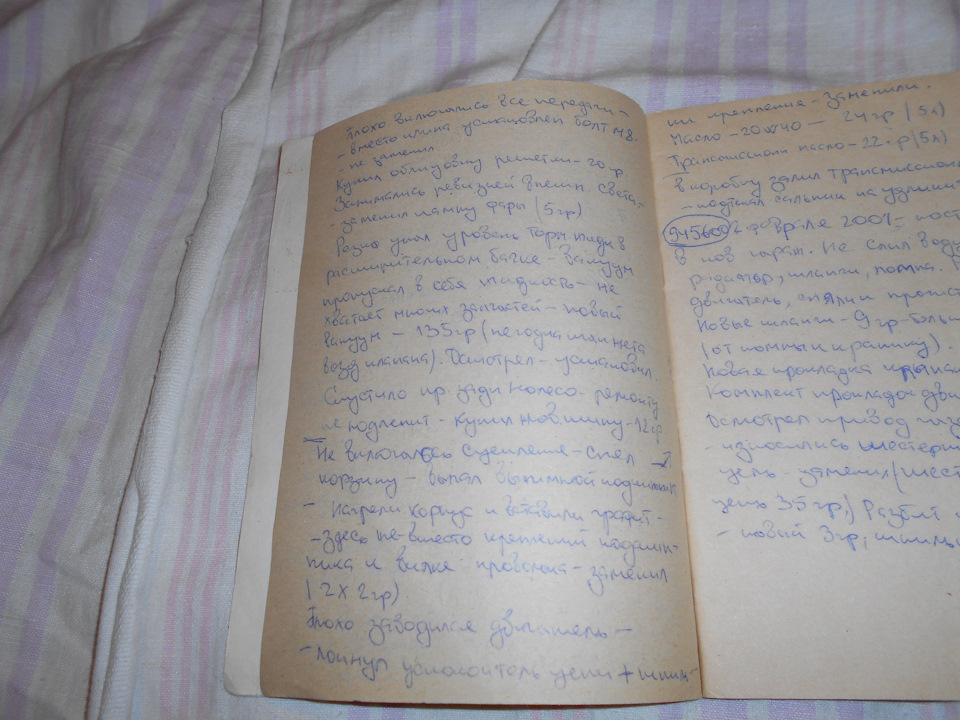 Плохо включались все передачи -
- вместо шлица установлен болт М8.
- не заменил
Купил облицовку решетки - 20 р.
Занимались ревизией внешн. света, -
- заменил лампу фары (5 гр)
Резко упал уровень торм. жидк в
расширительном бачке - вакуум
пропускал в себя жидкость - не
хватает многих запчастей - новый
вакуум - 135 гр (
возд клапана). Осмотрел - установил.
Спустило пр. задн колесо - ремонту
не подлежит - купил нов. шину - 12 гр
Не включалось сцепление - снял
корзину - выпал выжимной подшипник
- Нагрели корпус и вставили графит -
- здесь же вместо креплений подшип-
ника к вилке проволока - заменил
(2 х 2 гр)
Плохо заводился двигатель -
- лопнул успокоитель цепи +
ли крепление - заменили.
Масло - 20w40 - 24 гр (5л)
Трансмиссион масло - 22 р (5л)
в коробку залил трансмиссион
- подтекал сальник на удлинит
945600 2 феврале 2001 - пост
в нов гараж. Не слил воду
радиатор, шланги, помпа.
двигатель, сняли и прочист
Новые шланги - 9 гр - больш
(от помпы к крану).
Новая прокладка крышки
Комплект прокладок двиг
Осмотрел привод
- износились шестерни
цепь - заменил (шест
цепь 35 гр.)
- новый 3 гр,